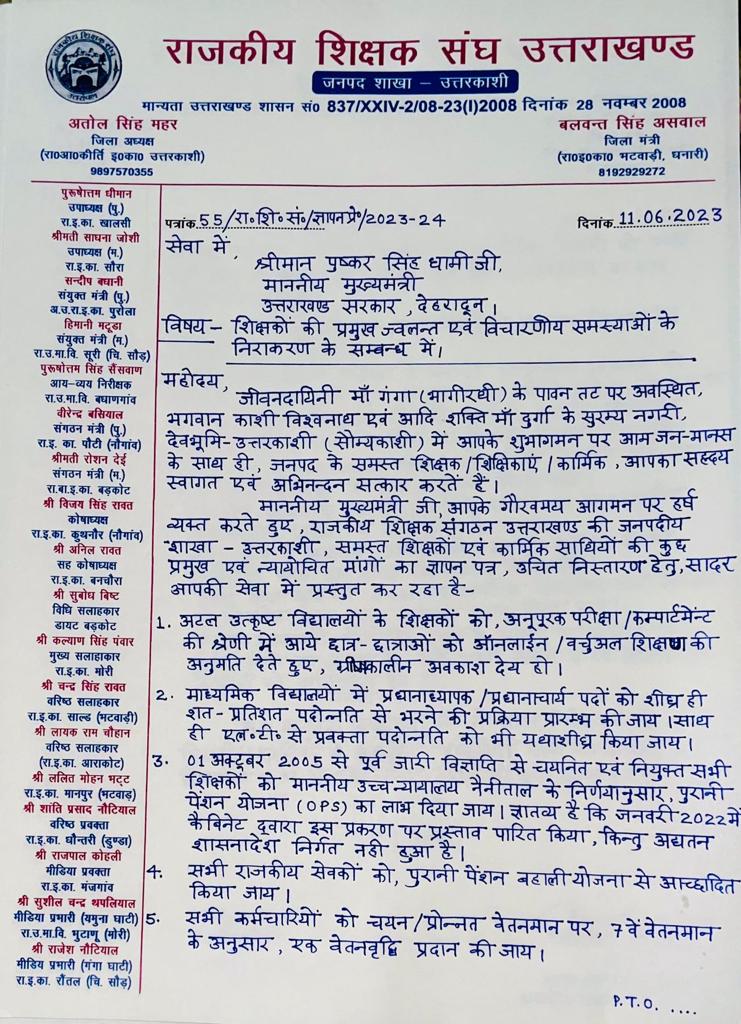 राजकीय शिक्षक संघ उत्तराखण्ड
जनपद शाखा – उत्तरकाशी
मान्यता उत्तराखण्ड शासन सं० 837/XXIV-2/08-23(I)2008 दिनांक 28 नवम्बर 2008
अतोल सिंह महर
जिला अध्यक्ष
(रा०आ०कीर्ति इ०का० उत्तरकाशी)
9897570355
बलवन्त सिंह असवाल
जिला मंत्री
(रा०इ०का० भटवाड़ी, धनारी)
8192929272
पुरूषोत्तम धीमान
उपाध्यक्ष (पु.)
रा.इ.का. खालसी
श्रीमती साधना जोशी
उपाध्यक्ष (म.)
रा.इ.का. सौरा
सन्दीप बधानी
संयुक्त मंत्री (पु.)
अ.उ.रा.इ.का. पुरोला
हिमानी मटूडा
संयुक्त मंत्री (म.)
रा.उ.मा.वि. सूरी (चि. सौड़)
पुरूषोत्तम सिंह सैंसवाण
आय-व्यय निरीक्षक
रा.उ.मा.वि. बधाणगांव
वीरेन्द्र बसियाल
संगठन मंत्री (पु.)
रा.इ. का. पौटी (नौगांव)
श्रीमती रोशन देई
संगठन मंत्री (म.)
रा.बा.इ.का. बड़कोट
श्री विजय सिंह रावत
कोषाध्यक्ष
रा.इ.का. कुथनौर (नौगांव)
श्री अनिल रावत
सह कोषाध्यक्ष
रा.इ.का. बनचौरा
श्री सुबोध बिष्ट
विधि सलाहकार
डायट बड़कोट
श्री कल्याण सिंह पंवार
मुख्य सलाहाकार
रा.इ.का. मोरी
श्री चन्द्र सिंह रावत
वरिष्ठ सलाहकार
रा.इ.का. साल्ड (भटवाड़ी)
श्री लायक राम चौहान
वरिष्ठ सलाहकार
(रा.इ.का. आराकोट)
श्री ललित मोहन भट्ट
रा.इ.का. मानपुर (भटवाड़)
श्री शांति प्रसाद नौटियाल
वरिष्ठ प्रवक्ता
रा.इ.का. धौन्तरी (डुण्डा)
श्री राजपाल कोहली
मीडिया प्रवक्ता
रा.इ.का. मंजगांव
श्री सुशील चन्द्र थपलियाल
मीडिया प्रभारी (यमुना घाटी)
रा.उ.मा.वि. भुटाणू (मोरी)
श्री राजेश नौटियाल
मीडिय प्रभारी (गंगा घाटी)
रा.इ.का. रौंतल (चि. सौड़)
पत्रांक 55/रा०शि०सं०/ज्ञापनप्रे०/2023-24
दिनांक 11.06.2023
सेवा में,
श्रीमान पुष्कर सिंह धामी जी,
माननीय मुख्यमंत्री
उत्तराखण्ड सरकार, देहरादून।
विषय – शिक्षकों की प्रमुख ज्वलन्त एवं विचारणीय समस्याओं के
निराकरण के सम्बन्ध में।
महोदय,
जीवनदायिनी माँ गंगा (भागीरथी) के पावन तट पर अवस्थित,
भगवान काशी विश्वनाथ एवं आदि शक्ति माँ दुर्गा के सुरम्य नगरी,
देवभूमि-उत्तरकाशी (सौम्यकाशी) में आपके शुभागमन पर आम जन-मानस
के साथ ही, जनपद के समस्त शिक्षक/शिक्षिकाएं/कार्मिक, आपका सहृदय
स्वागत एवं अभिनन्दन सत्कार करतें हैं।
माननीय मुख्यमंत्री जी, आपके गौरवमय आगमन पर हर्ष
व्यक्त करते हुए, राजकीय शिक्षक संगठन उत्तराखण्ड की जनपदीय
शाखा - उत्तरकाशी, समस्त शिक्षकों एवं कार्मिक साथियों की कुछ
प्रमुख एवं न्यायोचित मांगों का ज्ञापन पत्र, उचित निस्तारण हेतु, सादर
आपकी सेवा में प्रस्तुत कर रहा है –
1. अटल उत्कृष्ट विद्यालयों के शिक्षकों को, अनूपूरक परीक्षा/कम्पार्टमेन्ट
की श्रेणी में आये छात्र-छात्राओं को ऑनलाईन/वर्चुअल शिक्षण की
अनुमति देते हुए, ग्रीष्मकालीन अवकाश देय हो।
2. माध्यमिक विद्यालयों में प्रधानाध्यापक/प्रधानाचार्य पदों को शीघ्र ही
शत-प्रतिशत पदोन्नति से भरने की प्रक्रिया प्रारम्भ की जाय। साथ
ही एल०टी० से प्रवक्ता पदोन्नति को भी यथाशीघ्र किया जाय।
3. 01 अक्टूबर 2005 से पूर्व जारी विज्ञप्ति से चयनित एवं नियुक्त सभी
शिक्षकों को माननीय उच्च न्यायालय नैनीताल के निर्णयानुसार, पुरानी
पेंशन योजना (OPS) का लाभ दिया जाय। ज्ञातव्य है कि जनवरी 2022 में
कैबिनेट द्वारा इस प्रकरण पर प्रस्ताव पारित किया, किन्तु अद्यतन
शासनादेश निर्गत नही हुआ है।
4. सभी राजकीय सेवकों को, पुरानी पेंशन बहाली योजना से आच्छादित
किया जाय।
5. सभी कर्मचारियों को चयन/प्रोन्नत वेतनमान पर, 7वें वेतनमान
के अनुसार, एक वेतनवृद्धि प्रदान की जाय।
P.T.O. ....